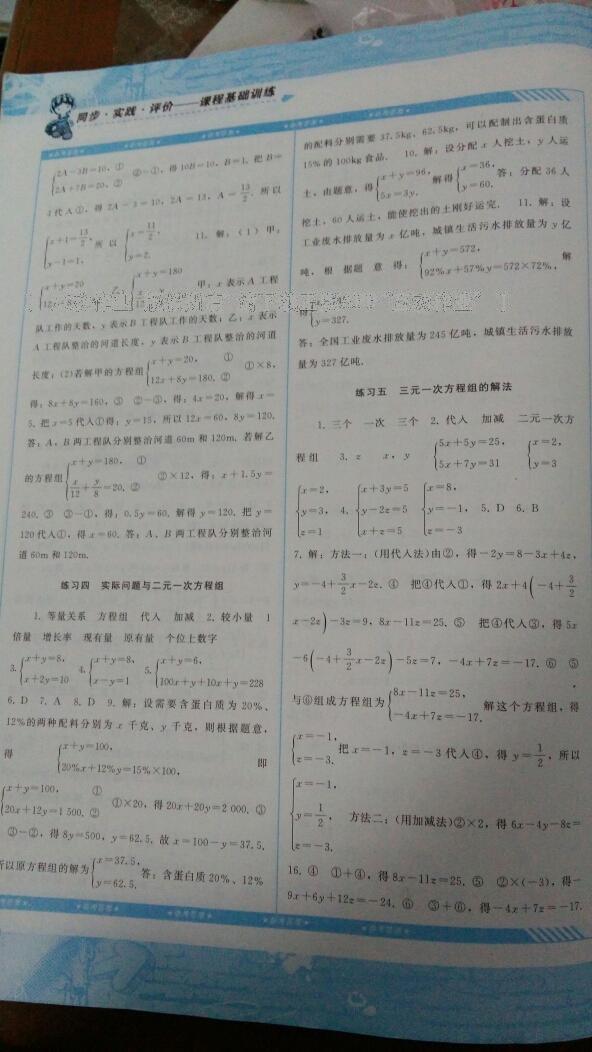 同步·实践·评价——课程基础训练
{2A-3B=10, ①
2A+7B=20. ② ②-①,得10B=10,B=1. 把B=
1代入①,得 2A-3=10, 2A=13, A=13/2. 所以
{x+1=13/2,
y-1=1, 所以 {x=11/2,
y=2. 11. 解:(1)甲:
{x+y=20 乙: {x+y=180
甲:x表示A工程
队工作的天数,y表示B工程队工作的天数;乙:x表示
A工程队整治的河道长度,y表示B工程队整治的河道
长度;(2)若解甲的方程组{x+y=20, ①
12x+8y=180. ② ①×8,
得:8x+8y=160,③ ②-③,得:4x=20,解得x=
5. 把x=5代入①得:y=15,所以12x=60,8y=120.
答:A、B两工程队分别整治河道60m和120m. 若解乙
的方程组{x+y=180, ①
x/12+y/8=20. ② ②×12,得:x+1.5y=
240. ③ ③-①,得:0.5y=60. 解得y=120. 把y=
120代入①,得x=60. 答:A、B两工程队分别整治河
道60m和120m.
练习四 实际问题与二元一次方程组
1. 等量关系 方程组 代入 加减 2. 较小量 1
倍量 增长率 现有量 原有量 个位上数字
3. {x+y=8,
x+2y=10 4. {x+y=8,
x-y=1 5. {x+y=6,
100x+y+10x+y=228
6. D 7. A 8. D 9. 解:设需要含蛋白质为20%、
12%的两种配料分别为x千克、y千克,则根据题意,
得 {x+y=100,
20%x+12%y=15%×100, 即
{x+y=100, ①
20x+12y=1 500. ② ①×20,得20x+20y=2 000. ③
③-②,得8y=500,y=62.5. 故x=100-y=37.5.
所以原方程组的解为{x=37.5,
y=62.5. 答:含蛋白质20%、12%
的配料分别需要37.5kg、62.5kg,可以配制出含蛋白质
15%的100kg食品. 10. 解:设分配x人挖土,y人运
土,由题意,得{x+y=96,
5x=3y. 解得{x=36,
y=60. 答:分配36人
挖土,60人运土,能使挖出的土刚好运完. 11. 解:设
工业废水排放量为x亿吨,城镇生活污水排放量为y亿
吨,根据题意得:{x+y=572,
92%x+57%y=572×72%, 解
y=327.
答:全国工业废水排放量为245亿吨,城镇生活污水排放
量为327亿吨.
练习五 三元一次方程组的解法
1. 三个 一次 三个 2. 代入 加减 二元一次方
程组 3. z x,y {5x+5y=25,
5x+7y=31 {x=2,
y=3
{x=2,
y=3,
z=1 4. {x+3y=5
y-2z=5
x+z=5 {x=8,
y=-1,
z=-3 5. D 6. B
7. 解:方法一:(用代入法)由②,得-2y=8-3x+4z,
y=-4+3/2x-2z. ④ 把④代入①,得2x+4(-4+3/2
x-2z)-3z=9,8x-11z=25. ⑤ 把④代入③,得5x
-6(-4+3/2x-2z)-5z=7,-4x+7z=-17. ⑥ ⑤
与⑥组成方程组为{8x-11z=25,
-4x+7z=-17. 解这个方程组,得
{x=-1,
z=-3. 把x=-1,z=-3代入④,得y=1/2,所以
{x=-1,
y=1/2,
z=-3. 方法二:(用加减法)②×2,得6x-4y-8z=
16. ④ ①+④,得8x-11z=25. ⑤ ②×(-3),得-
9x+6y+12z=-24. ⑥ ③+⑥,得-4x+7z=-17.